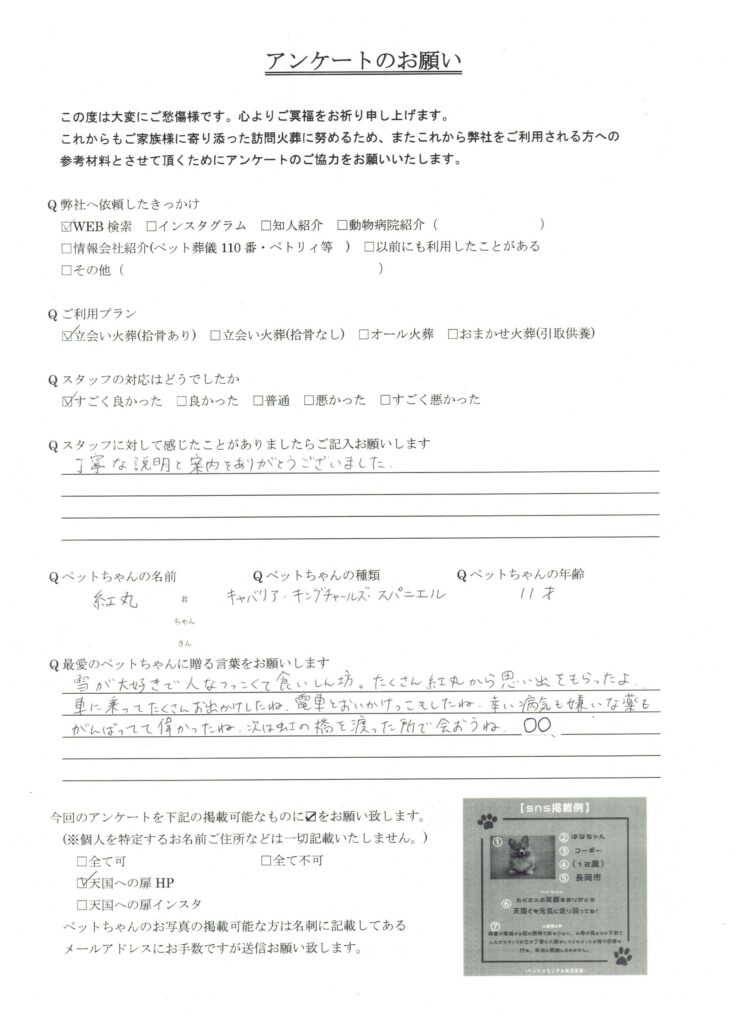 アンケートのお願い
この度は大変にご愁傷様です。心よりご冥福をお祈り申し上げます。
これからもご家族様に寄り添った訪問火葬に努めるため、またこれから弊社をご利用される方への
参考材料とさせて頂くためにアンケートのご協力をお願いいたします。
Q 弊社へ依頼したきっかけ
☑WEB 検索 □インスタグラム □知人紹介 □動物病院紹介（ ）
□情報会社紹介(ペット葬儀 110 番・ペトリィ等 ) □以前にも利用したことがある
□その他（ ）
Q ご利用プラン
☑立会い火葬(拾骨あり) □立会い火葬(拾骨なし) □オール火葬 □おまかせ火葬(引取供養)
Q スタッフの対応はどうでしたか
☑すごく良かった □良かった □普通 □悪かった □すごく悪かった
Q スタッフに対して感じたことがありましたらご記入お願いします
丁寧な説明と案内をありがとうございました.
Q ペットちゃんの名前 Q ペットちゃんの種類 Q ペットちゃんの年齢
紅丸 君 キャバリア・キングチャールズ・スパニエル 11才
ちゃん
さん
Q 最愛のペットちゃんに贈る言葉をお願いします
雪が大好きで人なつっこくて食いしん坊。たくさん紅丸から思い出をもらったよ.
車に乗ってたくさんお出かけしたね、電車とおいかけっこもしたね、辛い病気も嫌いな薬も
がんばってて偉かったね、次は虹の橋を渡った所で会おうね、〇〇、
今回のアンケートを下記の掲載可能なものに☑をお願い致します。
(※個人を特定するお名前ご住所などは一切記載いたしません。)
□全て可 □全て不可
☑天国への扉 HP
□天国への扉インスタ
ペットちゃんのお写真の掲載可能な方は名刺に記載してある
メールアドレスにお手数ですが送信お願い致します。
【sns掲載例】
① ② はなちゃん
③ コーギー
④ (12歳)
⑤ 長岡市
⑥ たくさんの笑顔をありがとう
天国でも元気に走り回ってね!
⑦